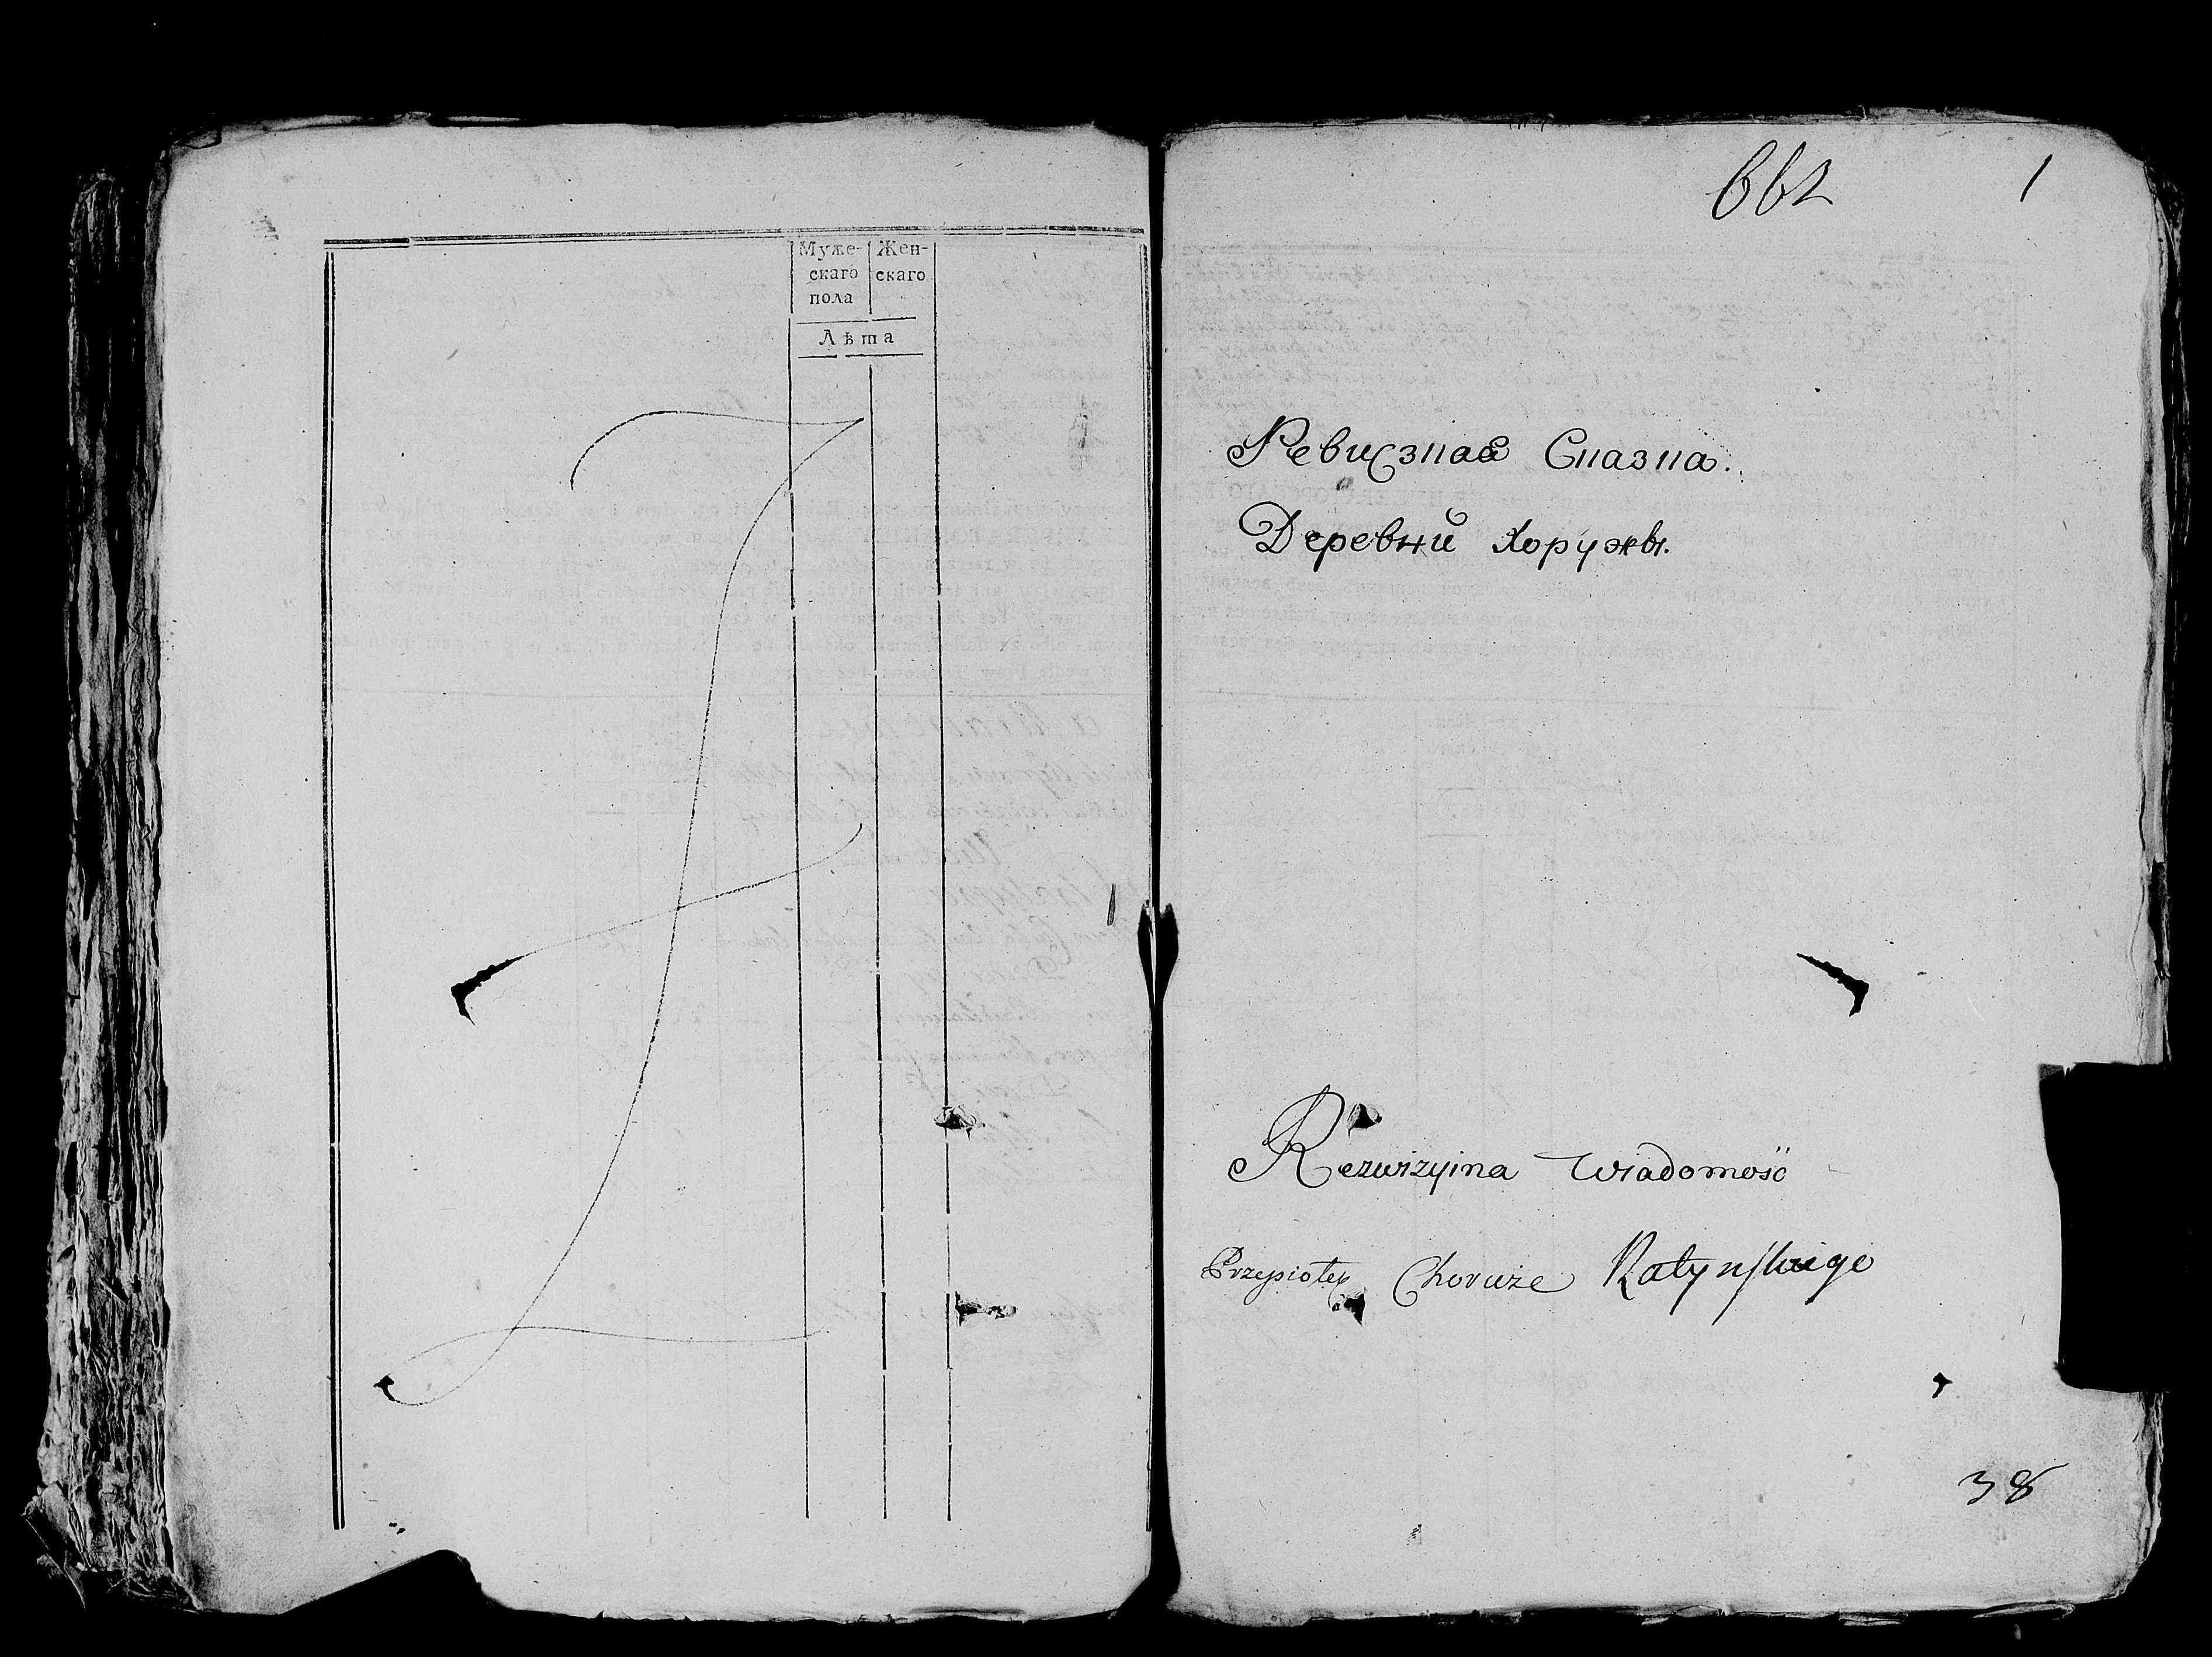 Муже-
скаго
пола
Жен-
скаго
Лѣта
662
1
Ревизная Сказка.
Деревни Хоружы.
Rewizyina Wiadomość
Choruże Ratynskiego
38